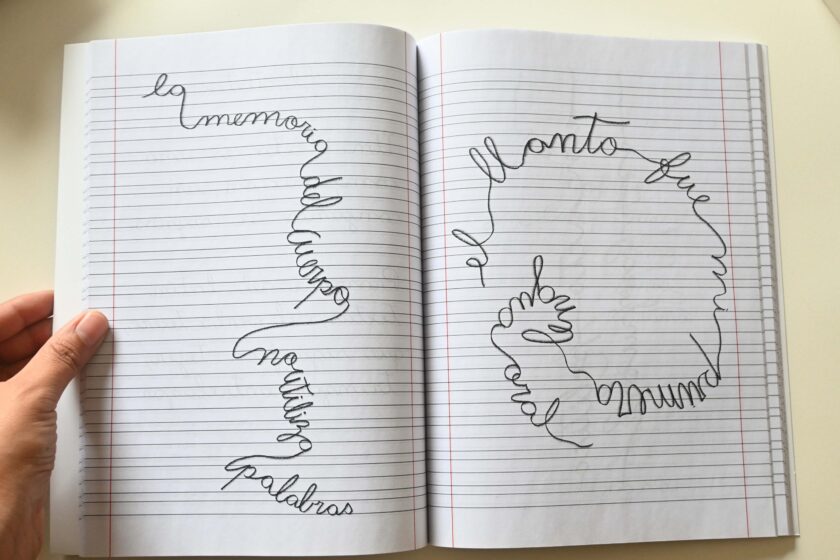 la memoria del cuerpo
no utiliza
palabras
el llanto fue mi primera lengua oral